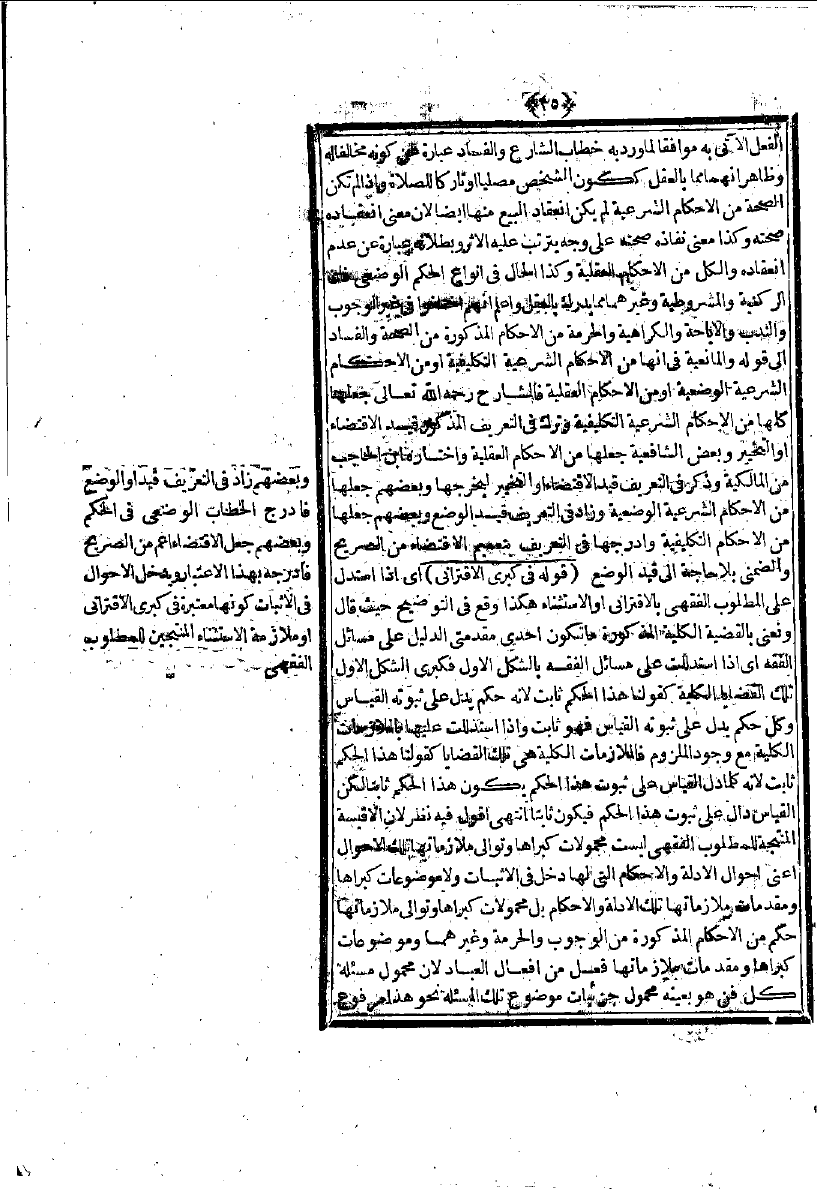 ﴿٣٥﴾
الفعل الآتى به موافقا لما ورد به خطاب الشارع والفساد عبارة عن كونه مخالفا له
وظاهر انهما مما بالعقل ككون الشخص مصليا او تاركا للصلاة واذا لم تكن
الصحة من الاحكام الشرعية لم يكن انعقاد البيع منها ايضا لان معنى انعقاده
صحته وكذا معنى نفاذه صحته على وجه يترتب عليه الاثر وبطلانه عبارة عن عدم
انعقاده والكل من الاحكام العقلية وكذا الحال فى انواع الحكم الوضعى
الركنية والمشروطية وغيرهما مما يدرك بالعقل واعلم انهم اختلفوا فى غير الوجوب
والندب والاباحة والكراهية والحرمة من الاحكام المذكورة من الصحة والفساد
الى قوله والمانعية فى انها من الاحكام الشرعية التكليفية او من الاحكام
الشرعية الوضعية او من الاحكام العقلية فالشارح رحمه الله تعالى جعلها
كلها من الاحكام الشرعية التكليفية وترك فى التعريف المذكور قيد الاقتضاء
او التخيير وبعض الشافعية جعلها من الاحكام العقلية واختاره ابن الحاجب
من المالكية وذكر فى التعريف قيد الاقتضاء او التخيير ليخرجها وبعضهم جعلها
من الاحكام الشرعية الوضعية وزاد فى التعريف قيد الوضع وبعضهم جعلها
من الاحكام التكليفية وادرجها فى التعريف بتعميم الاقتضاء من الصريح
والضمنى بلا حاجة الى قيد الوضع (قوله فى كبرى الاقترانى) اى اذا استدل
على المطلوب الفقهى بالاقترانى او الاستثناء هكذا وقع فى التوضيح حيث قال
ونعنى بالقضية الكلية المذكورة ماتكون احدى مقدمتى الدليل على مسائل
الفقه اى اذا استدللت على مسائل الفقه بالشكل الاول فكبرى الشكل الاول
تلك القضايا الكلية كقولنا هذا الحكم ثابت لانه حكم يدل على ثبوته القياس
وكل حكم يدل على ثبوته القياس فهو ثابت واذا استدللت عليها بالملازمات
الكلية مع وجود الملزوم فالملازمات الكلية هى تلك القضايا كقولنا هذا الحكم
ثابت لانه كلما دل القياس على ثبوت هذا الحكم يكون هذا الحكم ثابتا لكن
القياس دال على ثبوت هذا الحكم فيكون ثابتا انتهى اقول فيه نظر لان الاقيسة
المنتجة للمطلوب الفقهى ليست محمولات كبراها وتوالى ملازماتها تلك الاحوال
اعنى احوال الادلة والاحكام التى لها دخل فى الاثبات ولا موضوعات كبراها
ومقدمات ملازماتها تلك الادلة والاحكام بل محمولات كبراها وتوالى ملازماتها
حكم من الاحكام المذكورة من الوجوب والحرمة وغيرهما وموضوعات
كبراها ومقدمات ملازماتها فعل من افعال العباد لان محمول مسئلة
كل فن هو بعينه محمول جزئيات موضوع تلك المسئلة نحو هذا مرفوع
وبعضهم زاد فى التعريف قيد او الوضع
فادرج الخطاب الوضعى فى الحكم
وبعضهم جعل الاقتضاء اعم من الصريح
فادرجه بهذا الاعتبار ويدخل الاحوال
فى الاثبات كونها معتبرة فى كبرى الاقترانى
او ملازمة الاستثناء المنتجين للمطلوب
الفقهى